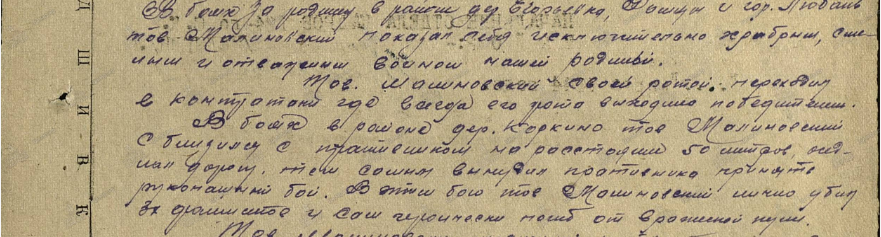 В боях за родину в районе дер. Егорьевка, и гор. Любань
тов. Малиновский показал себя исключительно храбрым, сме-
лым и отважным воином нашей родины.
Тов. Малиновский своей ротой переходил
в контратаки где всегда его рота выходила победителем.
В боях в районе дер. Коркино тов Малиновский
сблизился с противником на расстояние 50 метров,
дорогу. тем самым вынудил противника принять
рукопашный бой. В этом бою тов Малиновский лично убил
фашистов и сам героически погиб от вражеской пули.
Тов. Малиновский
Д
Ш
И
В
К